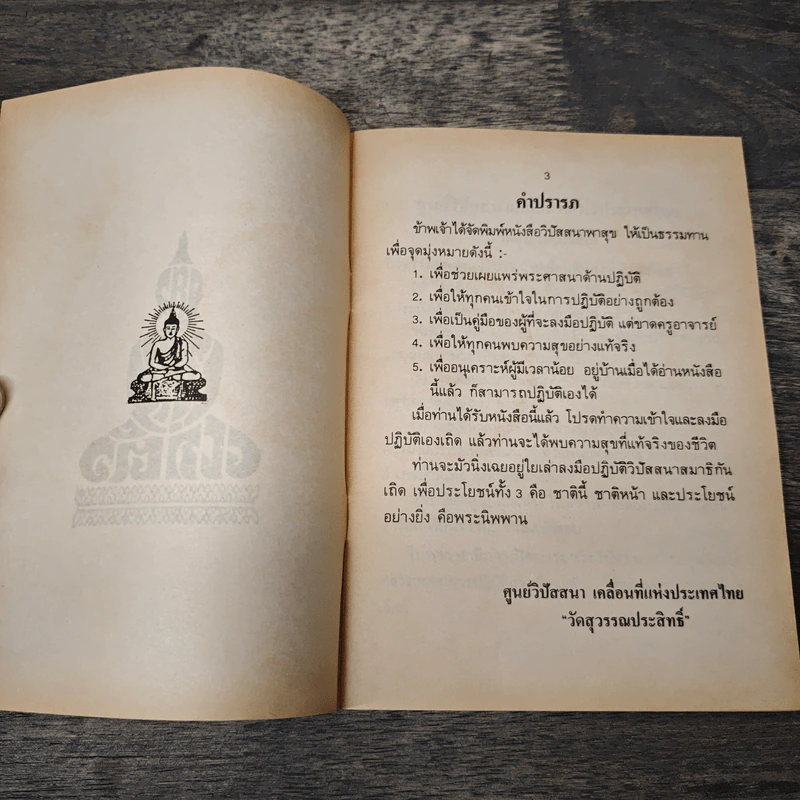 3
คำปรารภ
ข้าพเจ้าได้จัดพิมพ์หนังสือวิปัสสนาพาสุข ให้เป็นธรรมทาน
เพื่อจุดมุ่งหมายดังนี้ :-
1. เพื่อช่วยเผยแพร่พระศาสนาด้านปฏิบัติ
2. เพื่อให้ทุกคนเข้าใจในการปฏิบัติอย่างถูกต้อง
3. เพื่อเป็นคู่มือของผู้ที่จะลงมือปฏิบัติ แต่ขาดครูอาจารย์
4. เพื่อให้ทุกคนพบความสุขอย่างแท้จริง
5. เพื่ออนุเคราะห์ผู้มีเวลาน้อย อยู่บ้านเมื่อได้อ่านหนังสือ
นี้แล้ว ก็สามารถปฏิบัติเองได้
เมื่อท่านได้รับหนังสือนี้แล้ว โปรดทำความเข้าใจและลงมือ
ปฏิบัติเองเถิด แล้วท่านจะได้พบความสุขที่แท้จริงของชีวิต
ท่านจะมัวนิ่งเฉยอยู่ใยเล่าลงมือปฏิบัติวิปัสสนาสมาธิกัน
เถิด เพื่อประโยชน์ทั้ง 3 คือ ชาตินี้ ชาติหน้า และประโยชน์
อย่างยิ่ง คือพระนิพพาน
ศูนย์วิปัสสนา เคลื่อนที่แห่งประเทศไทย
"วัดสุวรรณประสิทธิ์"